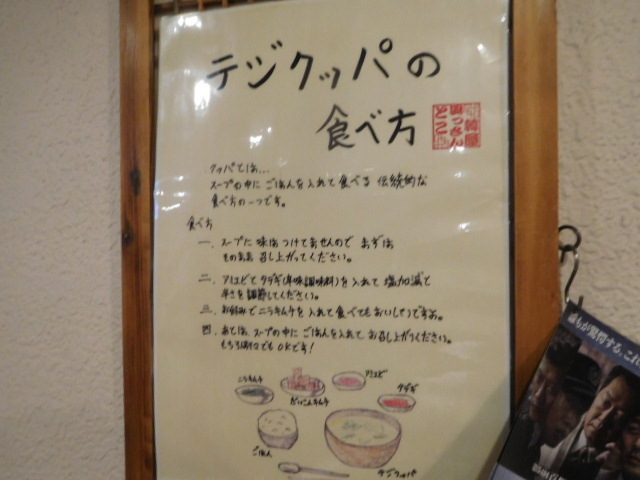 テジクッパの
食べ方
クッパとは…
スープの中に ごはんを入れて 食べる 伝統的な
食べ方の一つです。
食べ方
一．スープに 味は つけてませんので まずは
そのまま 召し上がってください。
二．アミエビと タデギ(辛味調味料)を 入れて 塩加減と
辛さを 調節してください。
三．お好みで ニラキムチを 入れて 食べても おいしいですよ。
四．あとは、スープの中に ごはんを入れて お召し上がりください。
もちろん別々でも OKです!
ニラキムチ
だいこんキムチ
アミエビ
タデギ
ごはん
テジクッパ